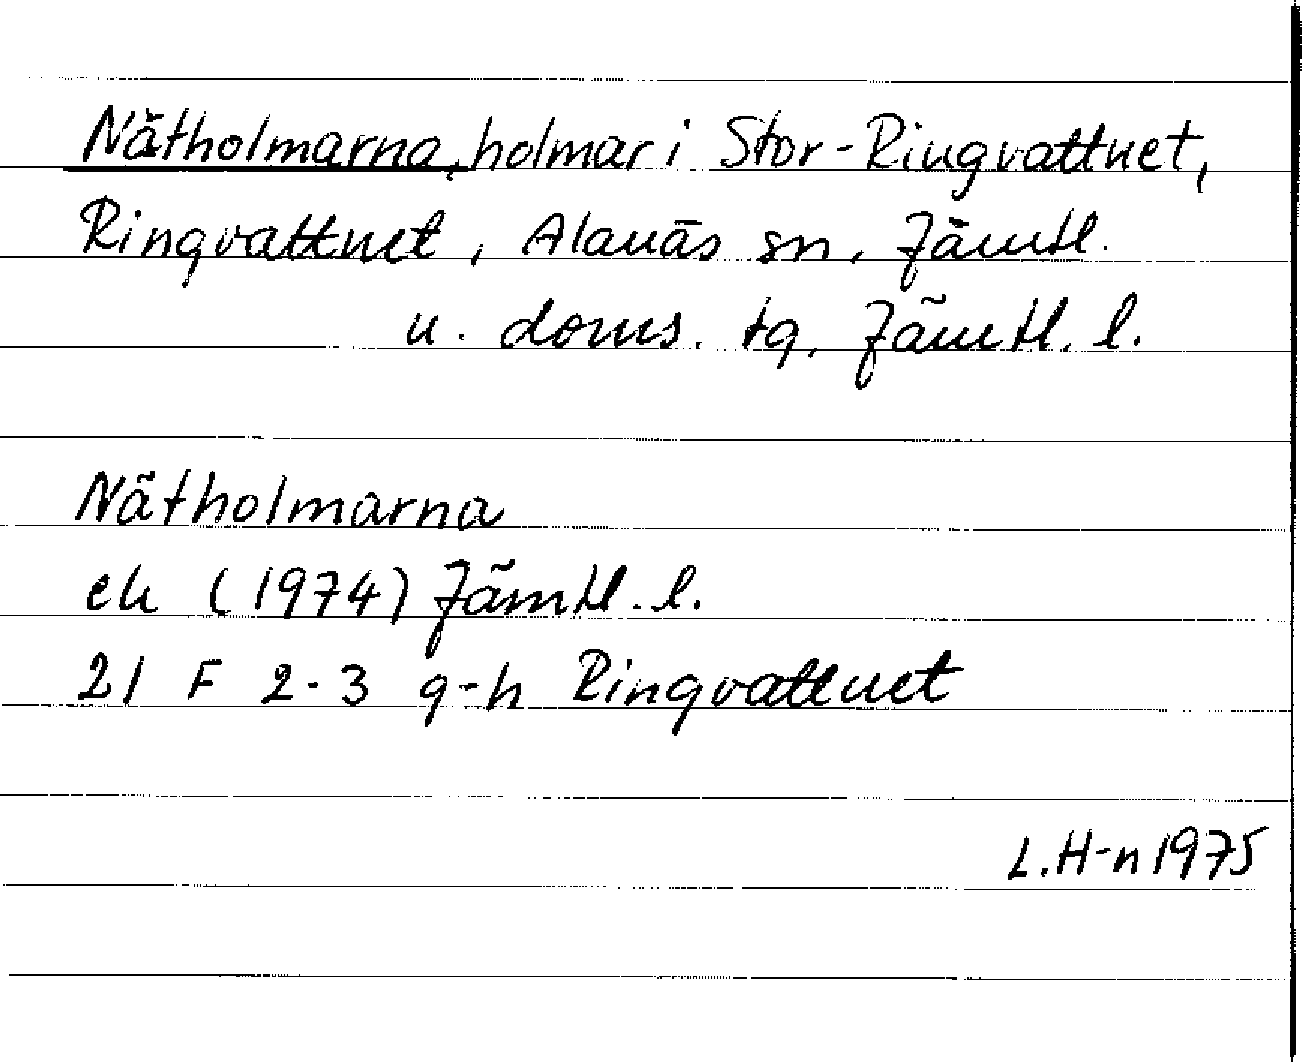 Nätholmarna, holmar i Stor-Ringvattnet,
Ringvattnet, Alanäs sn, Jämtl.
n. doms. tg, Jämtl. l.
Nätholmarna
ek (1974) Jämtl. l.
21 F 2-3 g-h Ringvattnet
L.H-n 1975